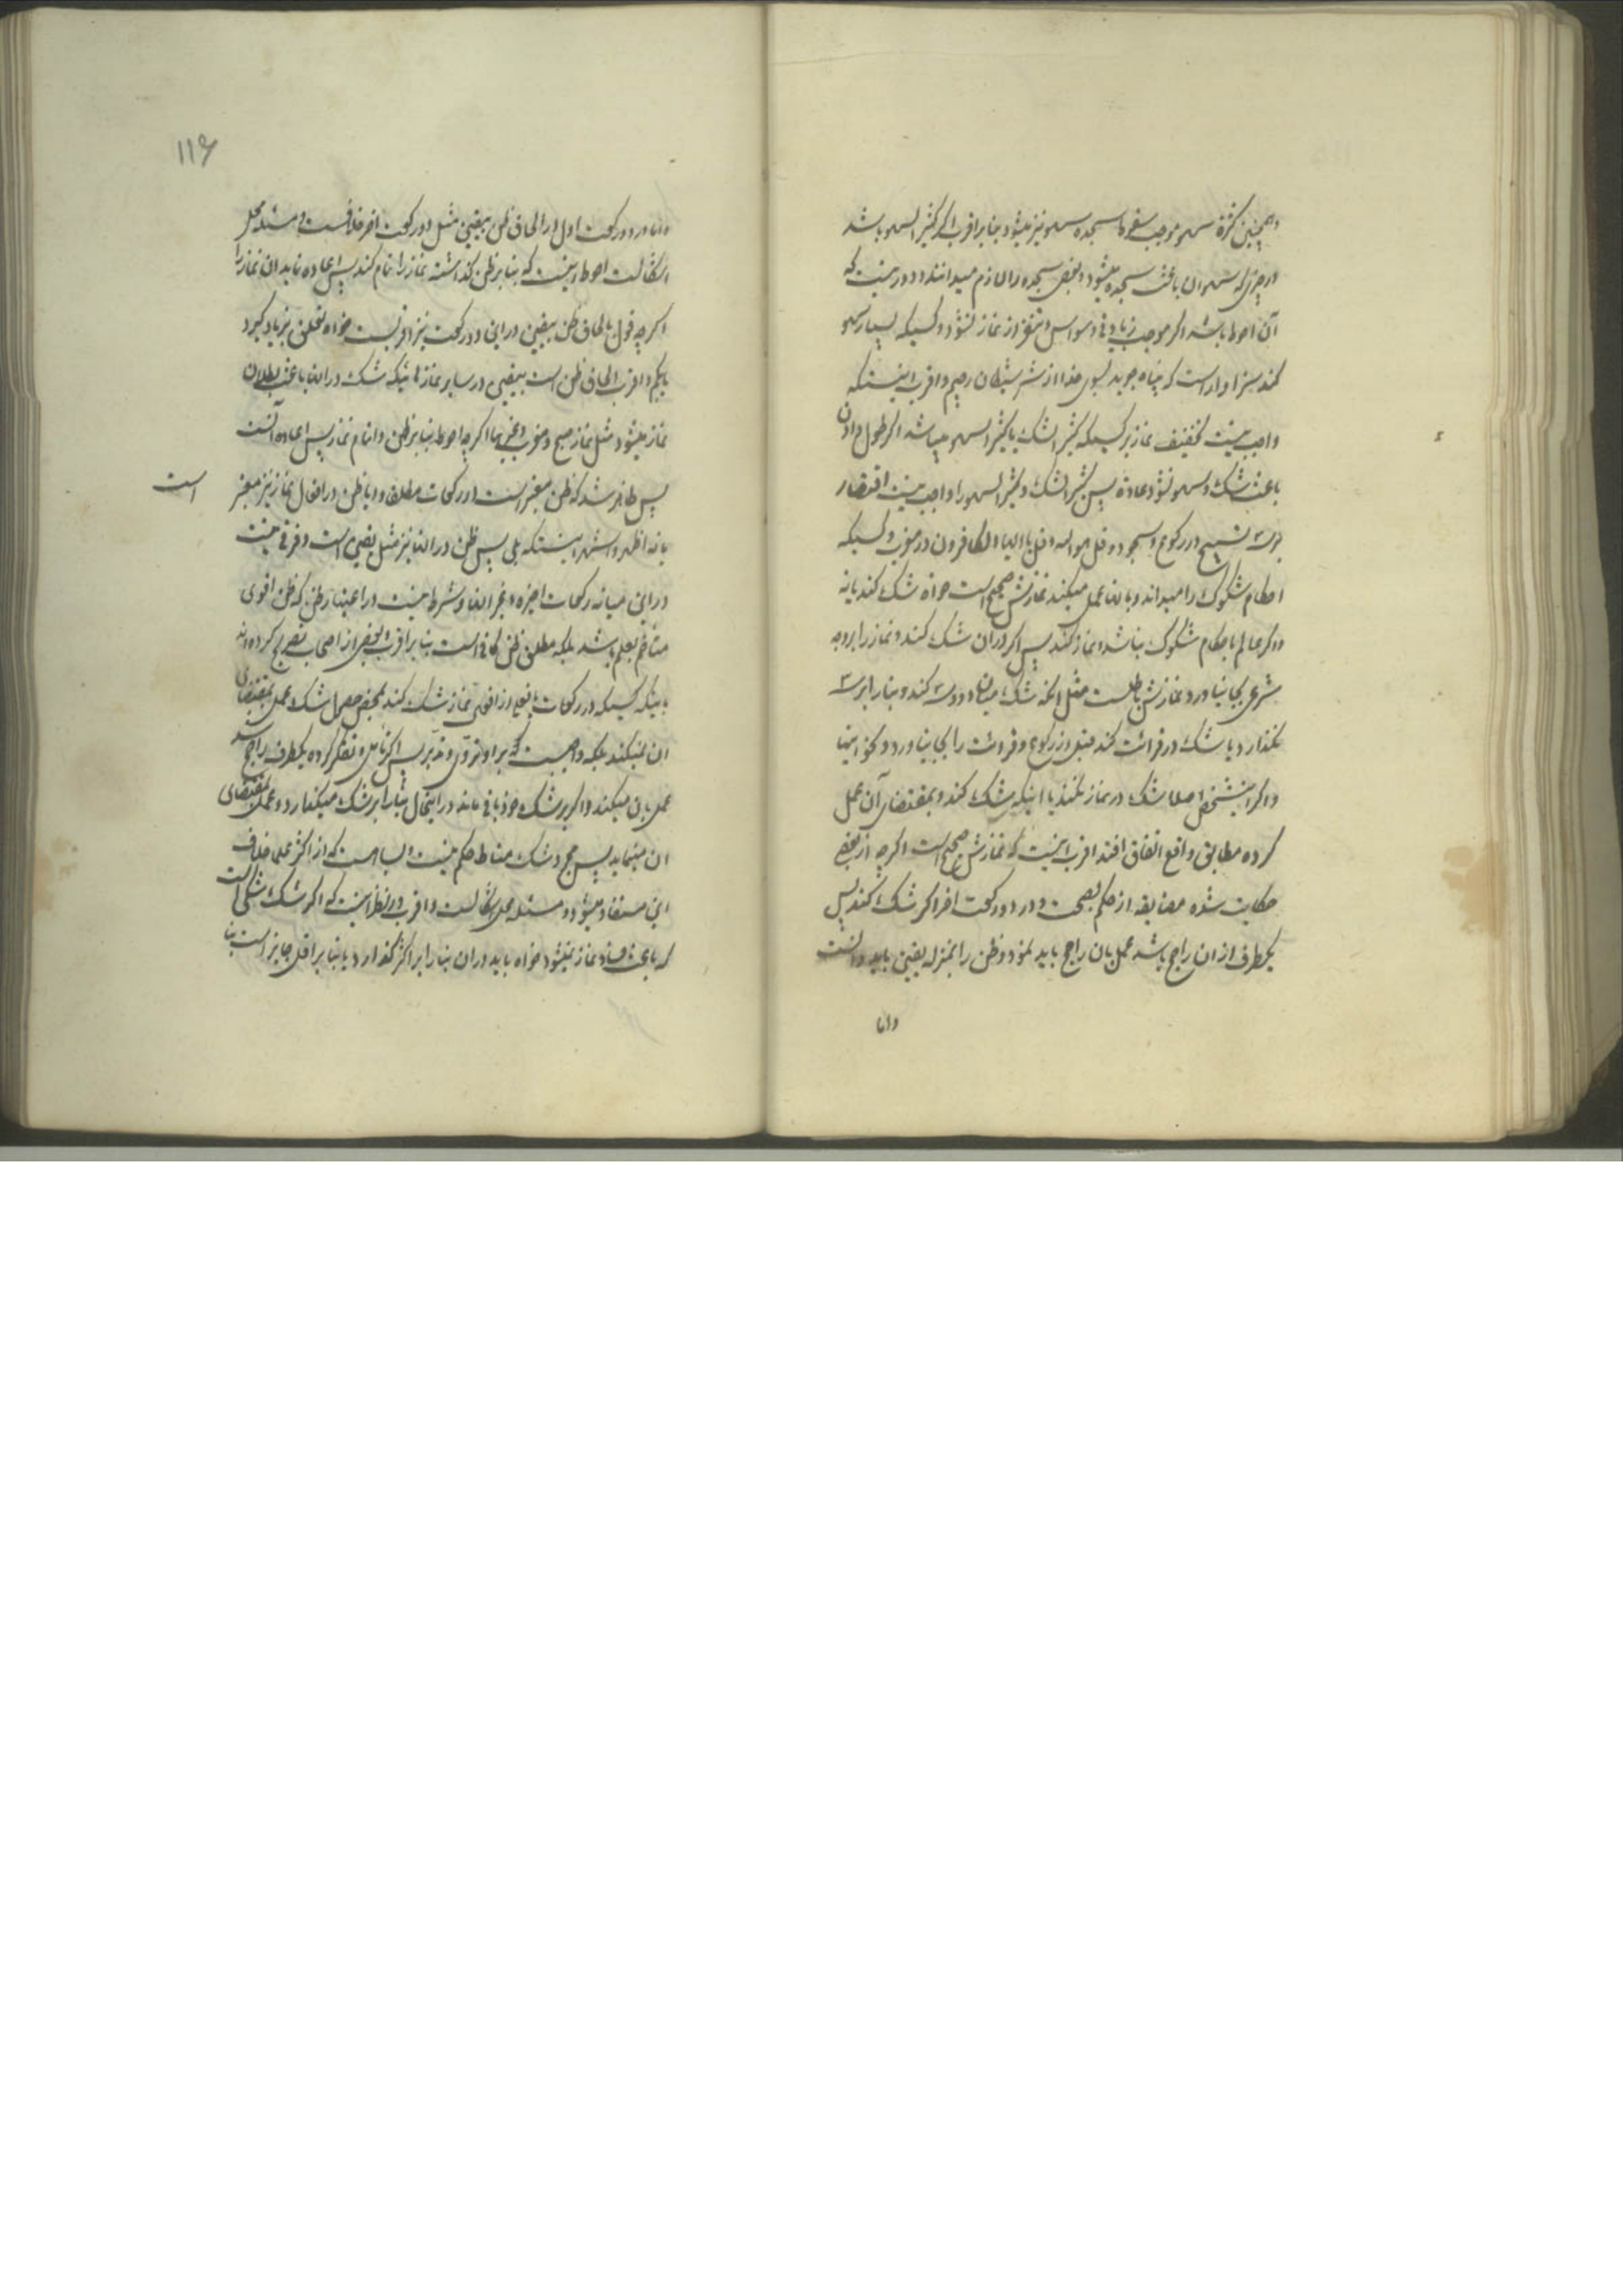 و همچنین کثرة سهو موجب سقوط سجده سهو نیز میشود بنا بر اقرب اکر کثیر السهو باشد
در چیزی که سهو ان باعث سجده میشود و بعضی سجده را لازم میدانند و دور نیست که
آن احوط باشد اکر موجب زیادتی وسواس و تنفر از نماز نشود و کسیکه بسیار سهو
کند سزاوار است که پناه جوید بسوی خدا از شر شیطان رجیم و اقرب اینستکه
واجب نیست تخفیف نماز بر کسیکه کثیر الشک یا کثیر السهو میباشد اکر طول دادن
باعث شک و سهو نشود عادة پس کثیر الشک و کثیر السهو را واجب نیست اقتصار
بر سه تسبیح در رکوع و سجود و قل هو الله و قل یا ایها الکافرون در مغرب و کسیکه
احکام شکوک را میداند و بانها عمل میکند نمازش صحیح است خواه شک کند یا نه
و اکر عالم باحکام شکوک نباشد و نماز کند پس اکر در ان شک کند و نماز را بر وجه
شرعی بجا نیاورد نمازش باطلست مثل انکه شک میان دو و سه کند و بنا را بر سه
نکذارد یا شک در قرائت کند قبل از رکوع و قرائت را بجا نیاورد و نحو اینها
و اکر اینشخص اصلا شک در نماز نکند یا اینکه شک کند و بمقتضای آن عمل
کرده مطابق واقع اتفاق افتد اقرب اینست که نمازش صحیح است اکر چه از بعضی
حکایت شده مضایقه از حکم بصحت و در دو رکعت اخر اکر شک کند پس
یکطرف از ان راجح باشد عمل بان راجح باید نمود و ظن را بمنزله یقین باید دانست
و اما
۱۱۶
و اما در دو رکعت اول در الحاق ظن بیقین مثل دو رکعت اخر خلافست و مسئله محل
اشکالست احوط اینست که بنا بر ظن کذاشته نماز را تمام کند پس اعاده نماید ان نماز را
اکر چه قول بالحاق ظن بیقین در این دو رکعت نیز اقربست خواه تعلق بزیاد کیرد
یا بکم و اقرب الحاق ظن است بیقین در سایر نمازهائیکه شک در انها باعث بطلان
نماز میشود مثل نماز صبح و مغرب و غیرهما اکر چه احوط بنا بر ظن و اتمام نماز پس اعاده آنست
پس ظاهر شد که ظن معتبر است در رکعات مطلقا و ایا ظن در افعال نماز نیز معتبر
است
یا نه اظهر و اشهر اینستکه بلی پس ظن در انها نیز مثل یقین است و فرقی نیست
در این میانه رکعات اخیره و غیر انها و شرط نیست در اعتبار ظن که ظن اقوی
متاخم بعلم باشد بلکه مطلق ظن کافی است بنا بر اقرب و بعضی از اصحاب تصریح کرده‌اند
باینکه کسیکه در رکعات یا فعلی از افعال نماز شک کند بمحض حصول شک عمل بمقتضای
ان نمیکند بلکه واجبست که بر او تروی و تدبر پس اکر تامل و تفکر کرده یکطرف راجح شد
عمل بان میکند و اکر بر شک خود باقی ماند در اینحال بنا را بر شک میکذارد و عمل بمقتضای
ان مینماید پس مجرد شک مناط حکم نیست و بسا هست که از اکثر علما خلاف
این مستفاد میشود و مسئله محل اشکالست و اقرب در نظر اینست که اکر شک شکی است
که باعث فساد نماز نمیشود خواه باید در ان بنا را بر اکثر کذارد یا بنا بر اقل جایز است بنا